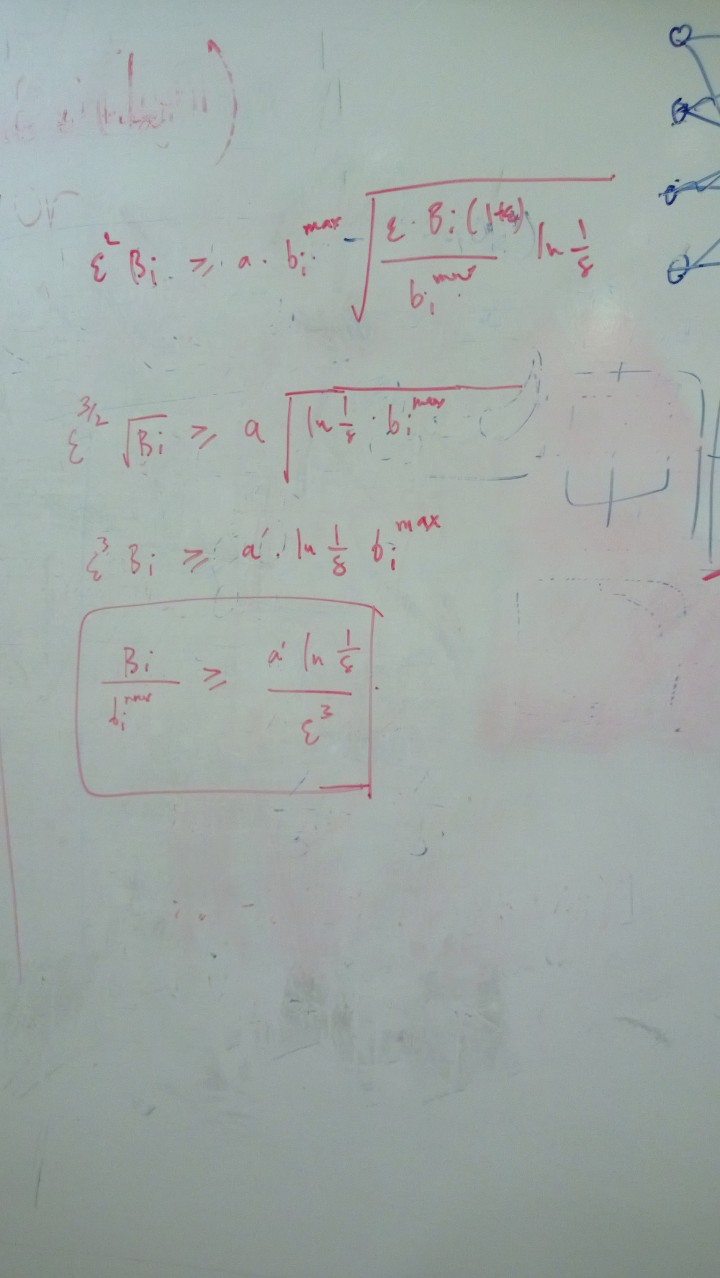 ε² Bᵢ ≥ a · bᵢᵐᵃˣ √(ε · Bᵢ (1+ε) / bᵢᵐᵃˣ ln 1/ε)
ε^{3/2} √Bᵢ ≥ a √(ln 1/ε · bᵢᵐᵃˣ)
ε³ Bᵢ ≥ a' · ln 1/ε bᵢᵐᵃˣ
Bᵢ / bᵢᵐᵃˣ ≥ a' ln 1/ε / ε³